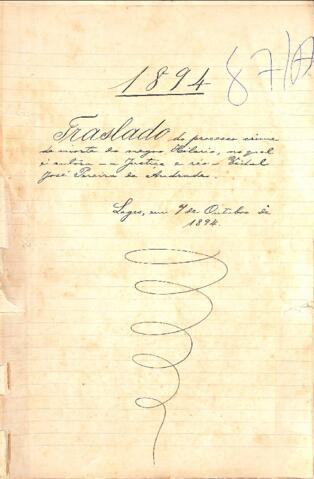 1894
87/07
Traslado do processo crime
de morte do negro Hilario, no qual
é autora — a Justiça e réo — Vidal
José Pereira de Andrade.
Lages, em 9 de Outubro de
1894.